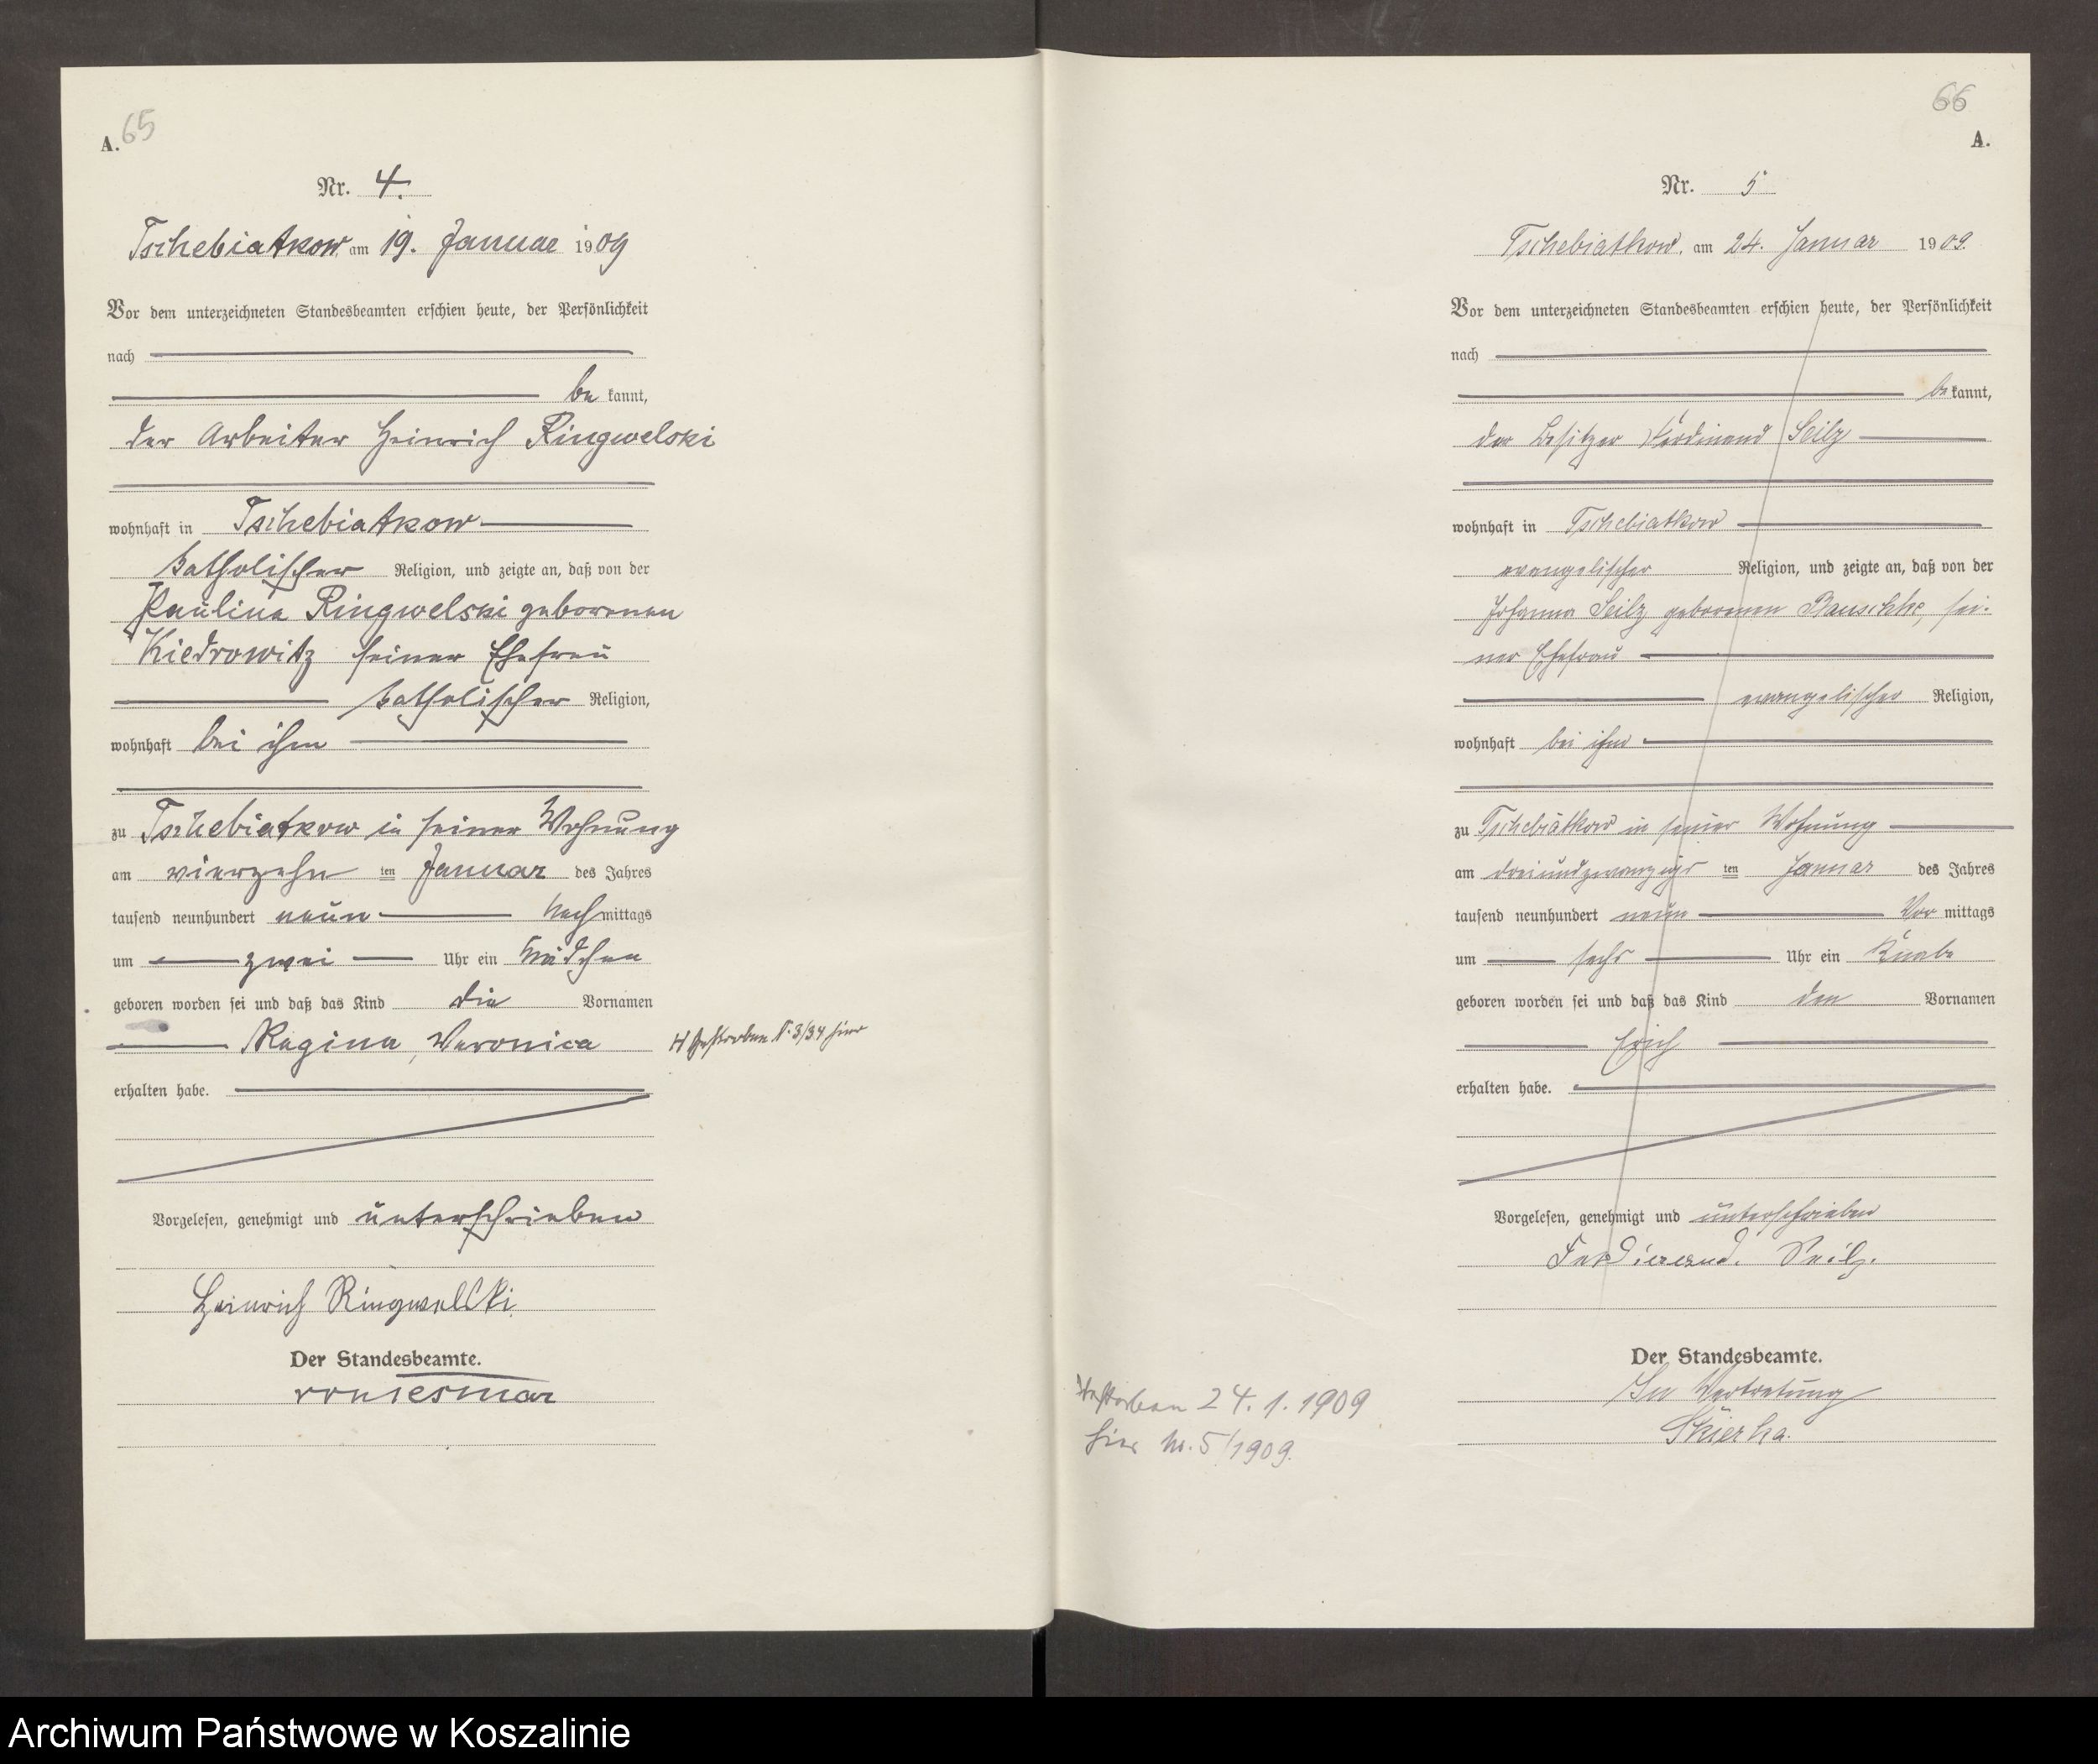 65
A.
Nr. 4.
Tschebiatkow, am 19. Januar 1909
Vor dem unterzeichneten Standesbeamten erschien heute, der Persönlichkeit
nach
be kannt,
der Arbeiter Heinrich Ringwelski
wohnhaft in Tschebiatkow
katholischer Religion, und zeigte an, daß von der
Pauline Ringwelski geborenen
Kiedrowitz seiner Ehefrau
katholischer Religion,
wohnhaft bei ihm
zu Tschebiatkow in seiner Wohnung
am vierzehn ten Januar des Jahres
tausend neunhundert neun Nach mittags
um zwei Uhr ein Mädchen
geboren worden sei und daß das Kind die Vornamen
Regina, Veronica
gestorben N. 3/34 hier
erhalten habe.
Vorgelesen, genehmigt und unterschrieben
Heinrich Ringwelski
Der Standesbeamte.
66
A.
Nr. 5
Tschebiatkow, am 24. Januar 1909.
Vor dem unterzeichneten Standesbeamten erschien heute, der Persönlichkeit
nach
be kannt,
der Besitzer Ferdinand Seilz
wohnhaft in Tschebiatkow
evangelischer Religion, und zeigte an, daß von der
Johanna Seilz geborenen Bauschke, sei-
ner Ehefrau
evangelischer Religion,
wohnhaft bei ihm
zu Tschebiatkow in seiner Wohnung
am dreiundzwanzigs ten Januar des Jahres
tausend neunhundert neun Vor mittags
um sechs Uhr ein Knabe
geboren worden sei und daß das Kind den Vornamen
Erich
erhalten habe.
Vorgelesen, genehmigt und unterschrieben
Ferdinand. Seilz.
Der Standesbeamte.
In Vertretung
Skierka.
Gestorben 24.1.1909
hier Nr. 5/1909.
Archiwum Państwowe w Koszalinie